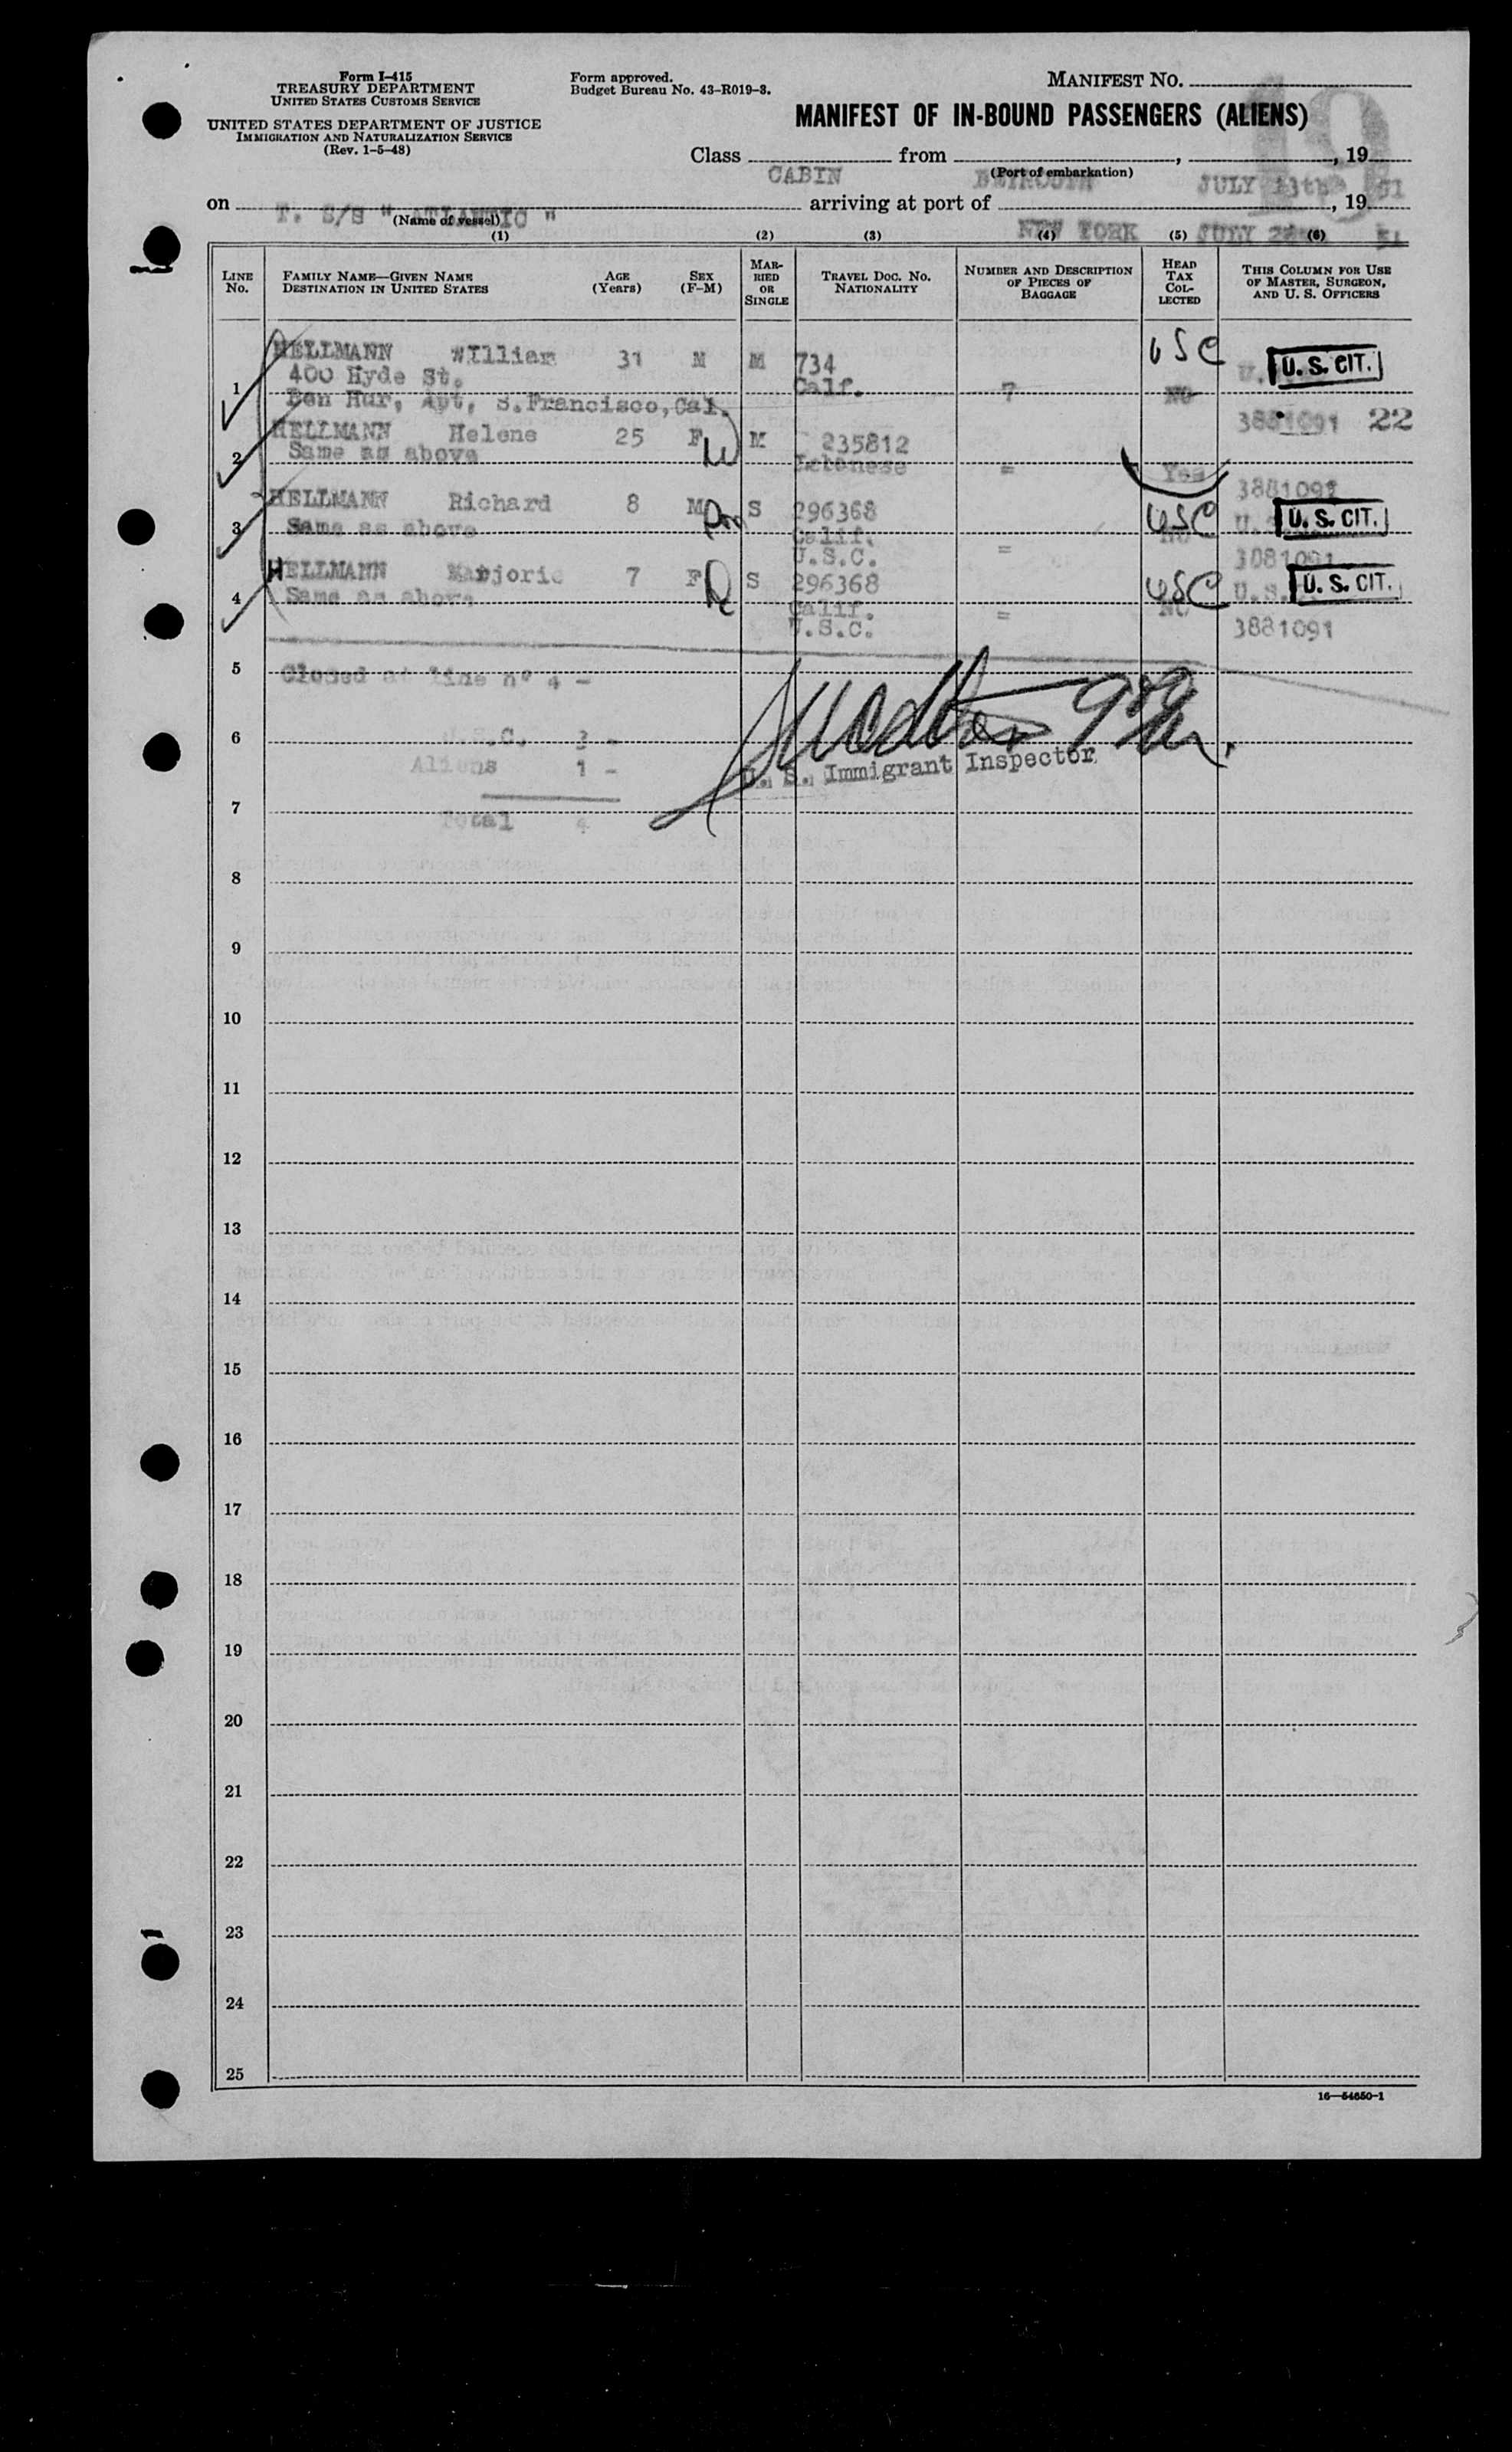 Form I-415
TREASURY DEPARTMENT
UNITED STATES CUSTOMS SERVICE
UNITED STATES DEPARTMENT OF JUSTICE
IMMIGRATION AND NATURALIZATION SERVICE
(Rev. 1-5-48)
Form approved.
Budget Bureau No. 43-R019-3.
MANIFEST NO.
19
MANIFEST OF IN-BOUND PASSENGERS (ALIENS)
Class CABIN from BEIROUTH, JULY 13th, 19 51
(Port of embarkation)
on T. S/S " ATLANTIC " arriving at port of NEW YORK JULY, 19 51
(Name of vessel)
(1) (2) (3) (4) (5) (6)
LINE No.
FAMILY NAME—GIVEN NAME DESTINATION IN UNITED STATES
AGE (Years)
SEX (F-M)
MARRIED OR SINGLE
TRAVEL DOC. NO. NATIONALITY
NUMBER AND DESCRIPTION OF PIECES OF BAGGAGE
HEAD TAX COLLECTED
THIS COLUMN FOR USE OF MASTER, SURGEON, AND U. S. OFFICERS
HELLMANN William 31 M M 734 USC U. S. CIT.
400 Hyde St. Calf.
1 7 NO
Ben Hur, Apt, S.Francisco,Cal. 3881091 22
HELLMANN Helene 25 F M 235812
2 Same as above Lebanese = Yes
3881091
HELLMANN Richard 8 M S 296368 USC U. S. CIT.
3 Same as above Calif. NO
U.S.C. = 3881091
HELLMANN Marjorie 7 F S 296368 USC U. S. CIT.
4 Same as above Calif. NO
U.S.C. = 3881091
5 Closed at line n° 4 -
6 U.S.C. 3 -
Aliens 1 - U. S. Immigrant Inspector
7
Total 4
8
9
10
11
12
13
14
15
16
17
18
19
20
21
22
23
24
25
16—54650-1